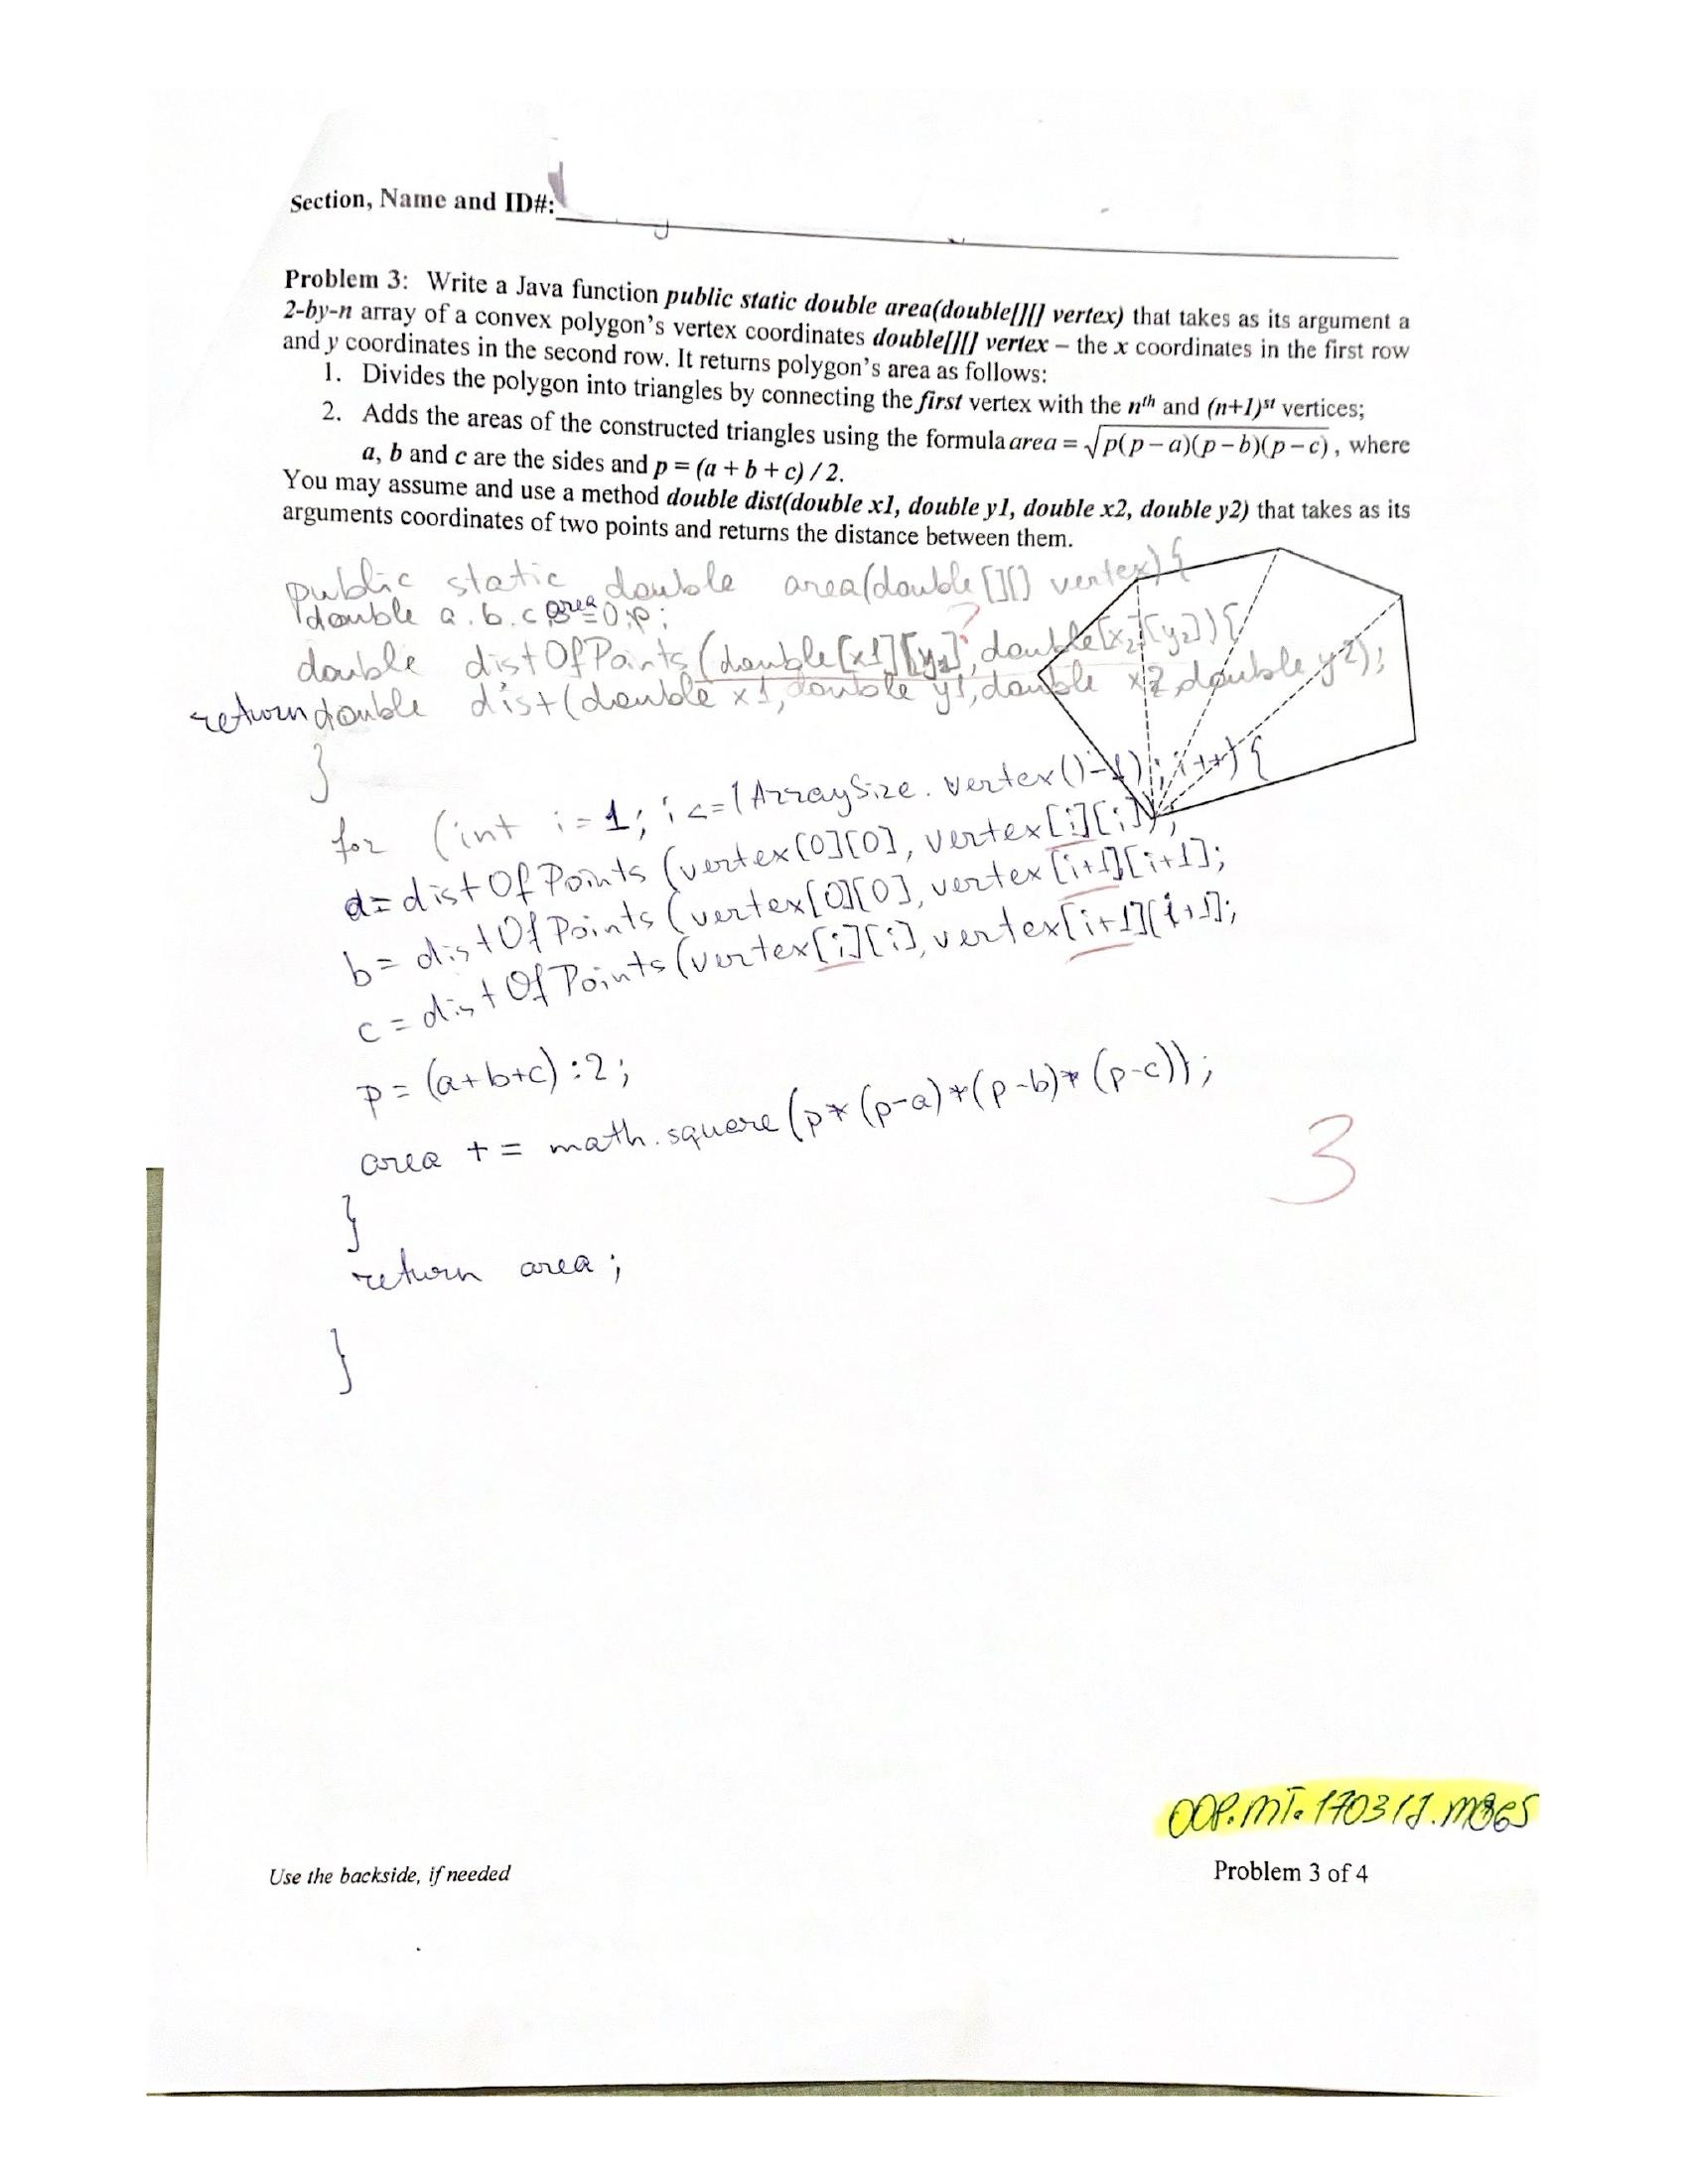 Section, Name and ID#:
Problem 3: Write a Java function public static double area(double[][] vertex) that takes as its argument a
2-by-n array of a convex polygon's vertex coordinates double[][] vertex – the x coordinates in the first row
and y coordinates in the second row. It returns polygon's area as follows:
1. Divides the polygon into triangles by connecting the first vertex with the nth and (n+1)st vertices;
2. Adds the areas of the constructed triangles using the formula area = √p(p – a)(p – b)(p – c) , where
a, b and c are the sides and p = (a + b + c) / 2.
You may assume and use a method double dist(double x1, double y1, double x2, double y2) that takes as its
arguments coordinates of two points and returns the distance between them.
public static double area(double [][] vertex) {
double a, b, c, area = 0; p;
?
double distOfPoints (double[x1][y1], double[x2][y2]) {
return double dist(double x1, double y1, double x2, double y2);
}
for (int i = 1; i <= (ArraySize. vertex()-1); i++) {
a = distOfPoints (vertex[0][0], vertex[i][i]);
b = distOfPoints (vertex[0][0], vertex[i+1][i+1];
c = distOfPoints (vertex[i][i], vertex[i+1][i+1];
p = (a+b+c) : 2;
area += math.square (p*(p-a)*(p-b)*(p-c));
3
}
return area ;
}
OOP.MT.170311.M365
Use the backside, if needed
Problem 3 of 4